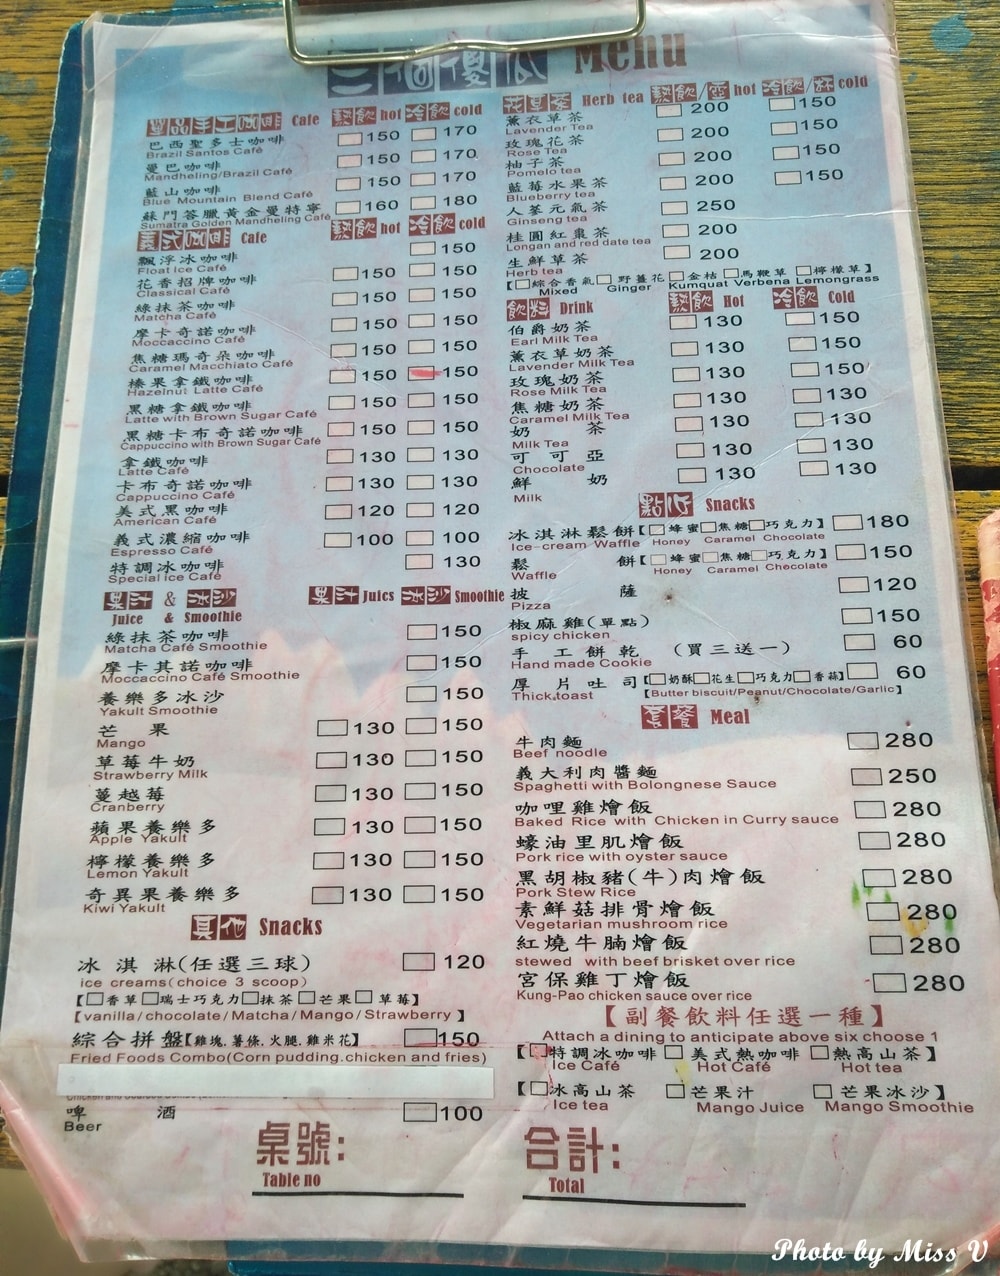 三個傻瓜 Menu
單品手工咖啡 Cafe 熱飲 hot 冷飲 cold
巴西聖多士咖啡 150 170
Brazil Santos Café
曼巴咖啡 150 170
Mandheling/Brazil Café
藍山咖啡 150 170
Blue Mountain Blend Café
蘇門答臘黃金曼特寧 160 180
Sumatra Golden Mandheling Café
義式咖啡 Cafe 熱飲 hot 冷飲 cold
飄浮冰咖啡 150
Float Ice Café
花香招牌咖啡 150 150
Classical Café
綠抹茶咖啡 150 150
Matcha Café
摩卡奇諾咖啡 150 150
Moccaccino Café
焦糖瑪奇朵咖啡 150 150
Caramel Macchiato Café
榛果拿鐵咖啡 150 150
Hazelnut Latte Café
黑糖拿鐵咖啡 150 150
Latte with Brown Sugar Café
黑糖卡布奇諾咖啡 150 150
Cappuccino with Brown Sugar Café
拿鐵咖啡 130 130
Latte Café
卡布奇諾咖啡 130 130
Cappuccino Café
美式黑咖啡 120 120
American Café
義式濃縮咖啡 100 100
Espresso Café
特調冰咖啡 130
Special ice Café
果汁 & 冰沙 果汁 Juics 冰沙 Smoothie
Juice & Smoothie
綠抹茶咖啡 150
Matcha Café Smoothie
摩卡其諾咖啡 150
Moccaccino Café Smoothie
養樂多冰沙 150
Yakult Smoothie
芒果 130 150
Mango
草莓牛奶 130 150
Strawberry Milk
蔓越莓 130 150
Cranberry
蘋果養樂多 130 150
Apple Yakult
檸檬養樂多 130 150
Lemon Yakult
奇異果養樂多 130 150
Kiwi Yakult
其他 Snacks
冰淇淋(任選三球) 120
ice creams(choice 3 scoop)
【香草 瑞士巧克力 抹茶 芒果 草莓】
【vanilla/chocolate/Matcha/Mango/Strawberry】
綜合拼盤【雞塊.薯條.火腿.雞米花】 150
Fried Foods Combo(Corn pudding.chicken and fries)
啤酒 100
Beer
花草茶 Herb tea 熱飲/壺 hot 冷飲/杯 cold
薰衣草茶 200 150
Lavender Tea
玫瑰花茶 200 150
Rose Tea
柚子茶 200 150
Pomelo tea
藍莓水果茶 200 150
Blueberry tea
人蔘元氣茶 250
Ginseng tea
桂圓紅棗茶 200
Longan and red date tea
生鮮草茶 200
Herb tea
【綜合香氣 野薑花 金桔 馬鞭草 檸檬草】
Mixed Ginger Kumquat Verbena Lemongrass
飲料 Drink 熱飲 Hot 冷飲 Cold
伯爵奶茶 130 150
Earl Milk Tea
薰衣草奶茶 130 150
Lavender Milk Tea
玫瑰奶茶 130 150
Rose Milk Tea
焦糖奶茶 130 130
Caramel Milk Tea
奶茶 130 130
Milk Tea
可可亞 130 130
Chocolate
鮮奶 130 130
Milk
點心 Snacks
冰淇淋鬆餅【蜂蜜 焦糖 巧克力】 180
Ice-cream Waffle Honey Caramel Chocolate
鬆餅【蜂蜜 焦糖 巧克力】 150
Waffle Honey Caramel Chocolate
披薩 120
Pizza
椒麻雞(單點) 150
spicy chicken
手工餅乾 (買三送一) 60
Hand made Cookie
厚片吐司【奶酥 花生 巧克力 香蒜】 60
Thick toast 【Butter biscuit/Peanut/Chocolate/Garlic】
套餐 Meal
牛肉麵 280
Beef noodle
義大利肉醬麵 250
Spaghetti with Bolongnese Sauce
咖哩雞燴飯 280
Baked Rice with Chicken in Curry sauce
蠔油里肌燴飯 280
Pork rice with oyster sauce
黑胡椒豬(牛)肉燴飯 280
Pork Stew Rice
素鮮菇排骨燴飯 280
Vegetarian mushroom rice
紅燒牛腩燴飯 280
stewed with beef brisket over rice
宮保雞丁燴飯 280
Kung-Pao chicken sauce over rice
【副餐飲料任選一種】
Attach a dining to anticipate above six choose 1
【特調冰咖啡 美式熱咖啡 熱高山茶】
Ice Café Hot Café Hot tea
【冰高山茶 芒果汁 芒果冰沙】
Ice tea Mango Juice Mango Smoothie
桌號: 合計:
Table no Total
Photo by Miss V